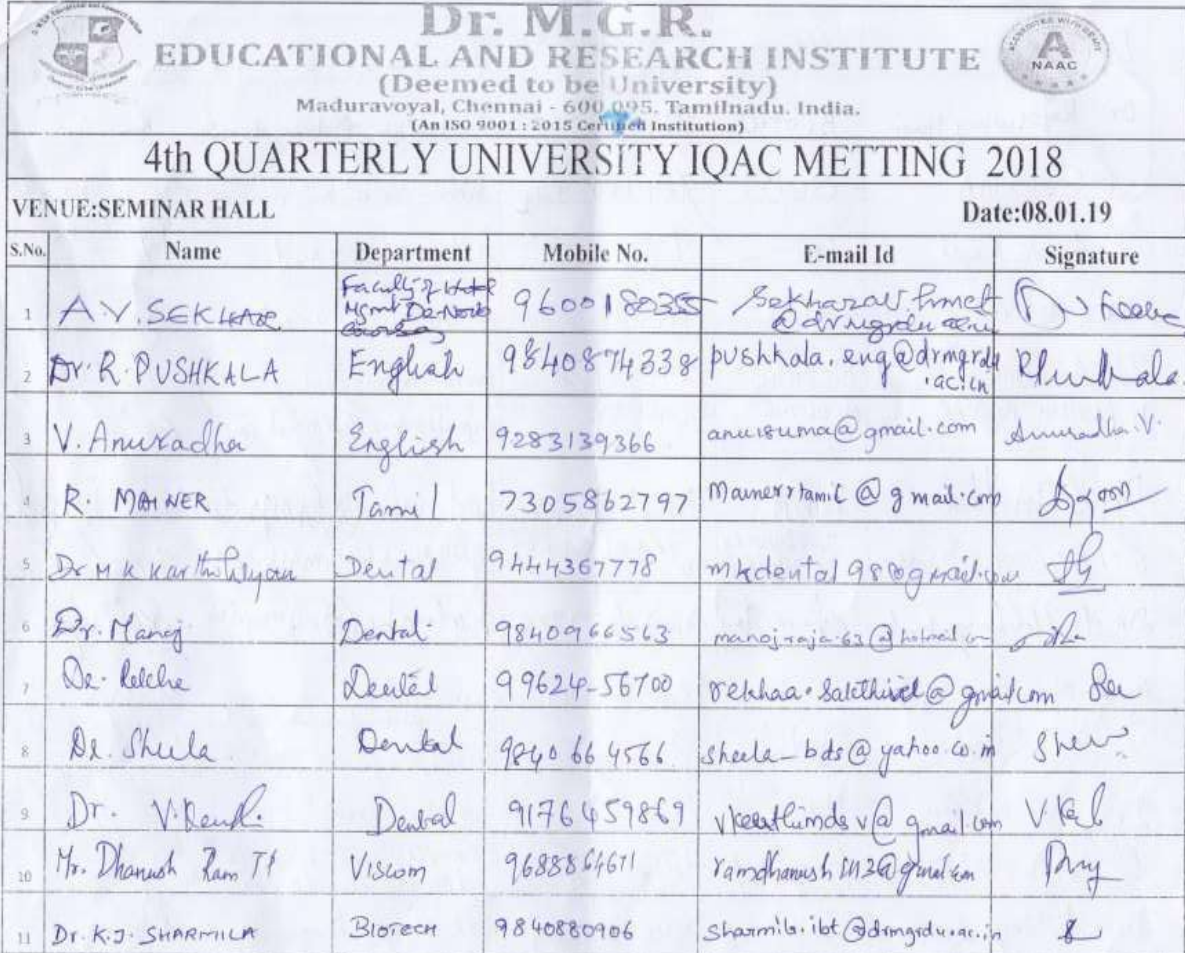 Dr. M.G.R.
EDUCATIONAL AND RESEARCH INSTITUTE
(Deemed to be University)
Maduravoyal, Chennai - 600 095. Tamilnadu. India.
(An ISO 9001 : 2015 Certified Institution)
A
NAAC
4th QUARTERLY UNIVERSITY IQAC METTING 2018
VENUE:SEMINAR HALL Date:08.01.19
S.No. Name Department Mobile No. E-mail Id Signature
1 A.V. SEKHAR Faculty of Hotel Mgmt De-Novo courses 9600180355
2 Dr. R. PUSHKALA English 9840874338 pushkala.eng@drmgrdu.ac.in
3 V. Anuradha English 9283139366 anuisuma@gmail.com Anuradha.V.
4 R. MAINER Tamil 7305862797 mainerrtamil@gmail.com
5 Dr M K Karthikeyan Dental 9444367778 mkdental98@gmail.com
6 Dr. Manoj Dental 9840966563 manojraja.63@hotmail.com
7 Dr. Rekha Dental 99624-56700 rekhaa.sakthivel@gmail.com
8 Dr. Sheela Dental 9840 66 4566 sheela_bds@yahoo.co.in
9 Dr. Dental 9176459869 vkeerthimdsv@gmail.com
10 Mr. Dhanush Ram Viscom
11 Dr. K.J. SHARMILA BIOTECH 9840880906 sharmila.ibt@drmgrdu.ac.in